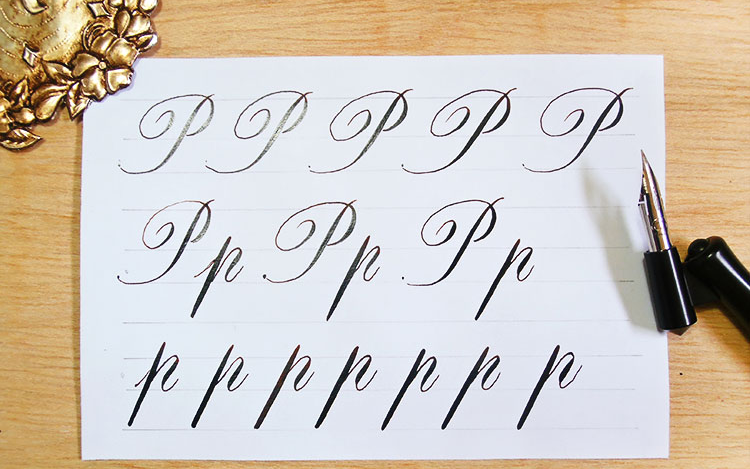 P P P P P
Pp Pp Pp
p p p p p p p